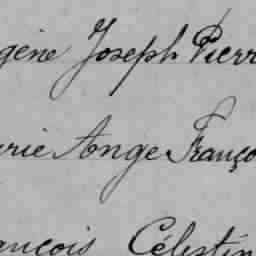 gène Joseph Pierr
rie Ange Franço
ançois Célestin